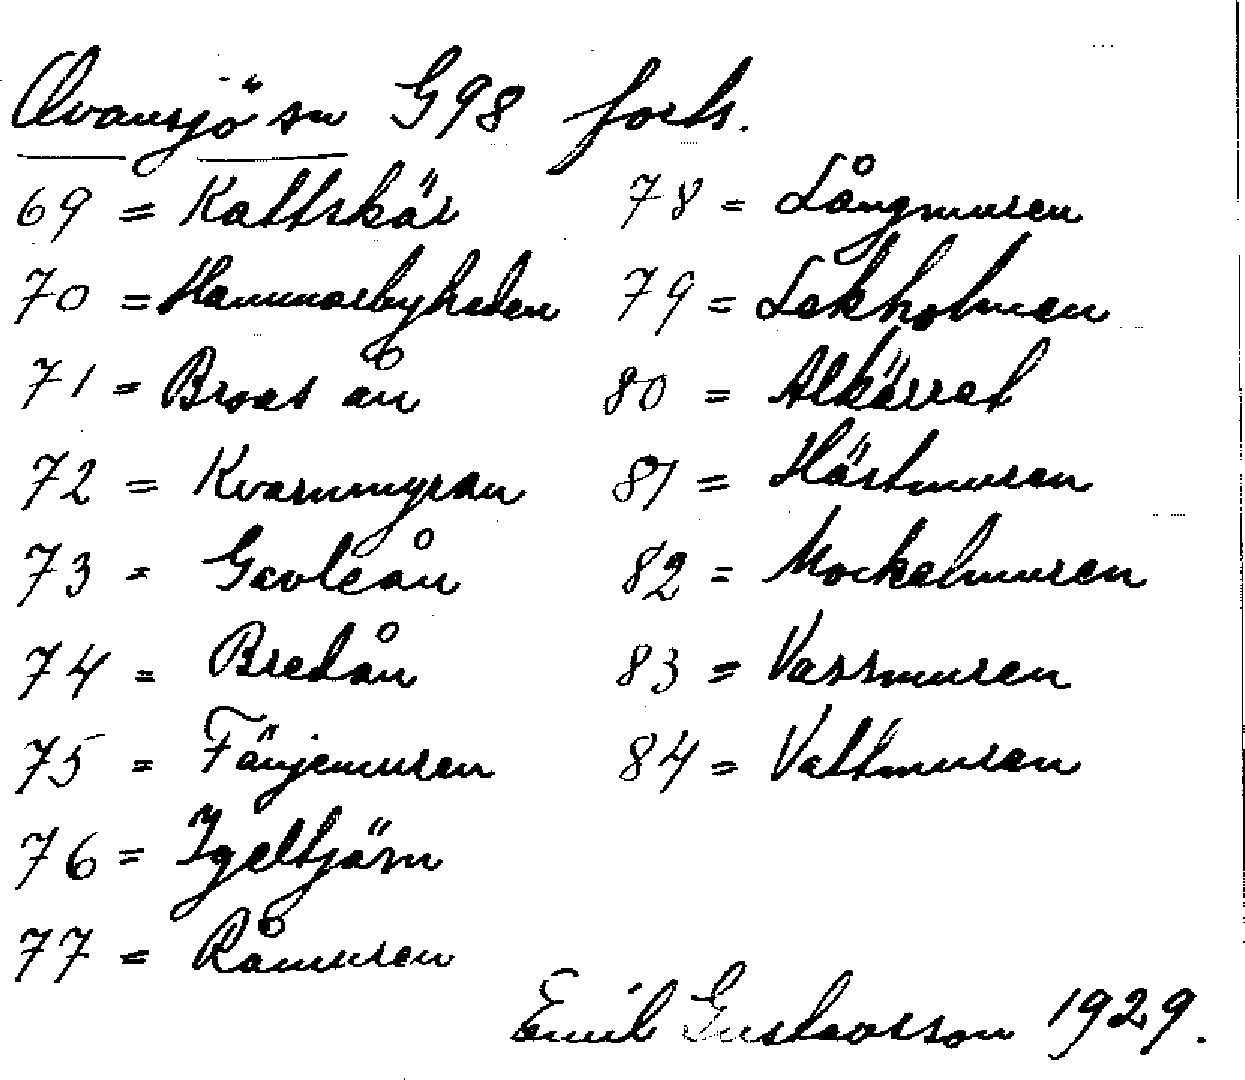 Ovansjö sn G98 forts.
69 = Kattskär
70 = Hammarbyheden
71 = Broat ån
72 = Kvarnmyran
73 = Gavleån
74 = Bredån
75 = Tänjemuren
76 = Igeltjärn
77 = Råmuren
78 = Långmuren
79 = Lekholmen
80 = Alkärret
81 = Hästmuren
82 = Mockelmuren
83 = Vassmuren
84 = Vattmuren
Emil Gustavsson 1929.